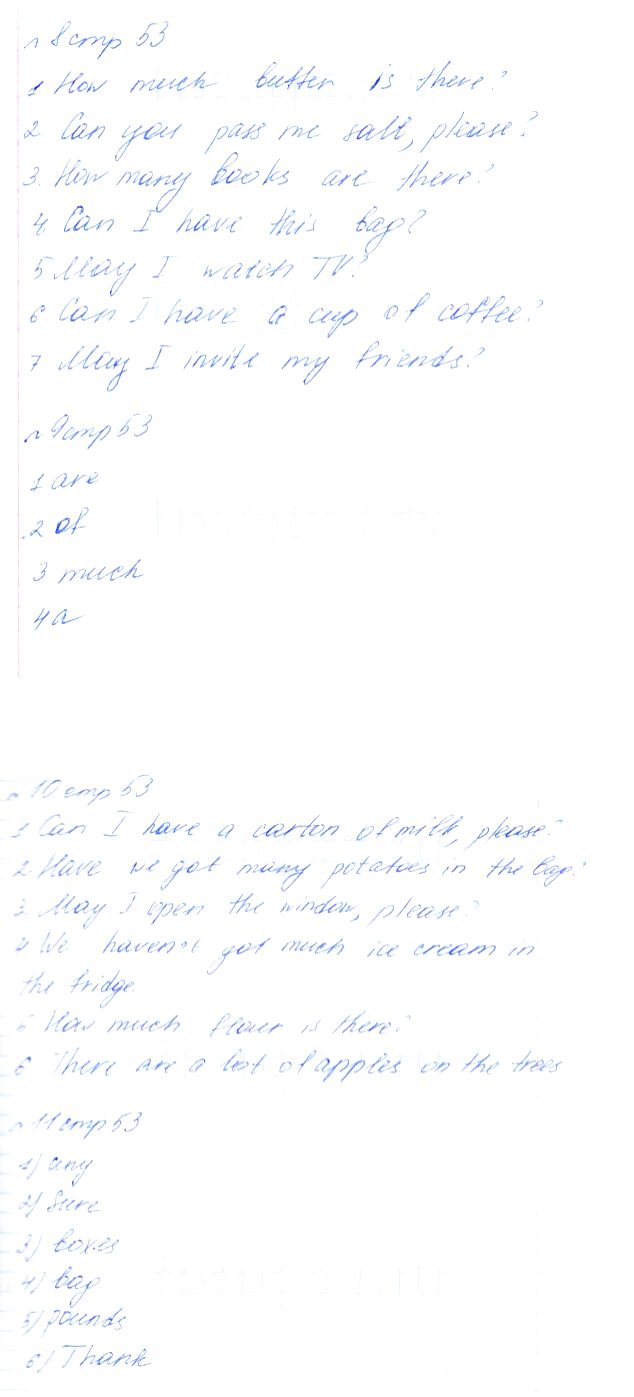 n 8 стр 53
1 How much butter is there?
2 Can you pass me salt, please?
3. How many books are there?
4 Can I have this bag?
5 May I watch TV?
6 Can I have a cup of coffee?
7 May I invite my friends?
n 9 стр 53
1 are
2 of
3 much
4 a
n 10 стр 53
1 Can I have a carton of milk, please?
2 Have we got many potatoes in the bag?
3 May I open the window, please?
4 We haven't got much ice cream in
the fridge.
5 How much flour is there?
6 There are a lot of apples on the trees
n 11 стр 53
1) any
2) Sure
3) boxes
4) bag
5) pounds
6) Thank